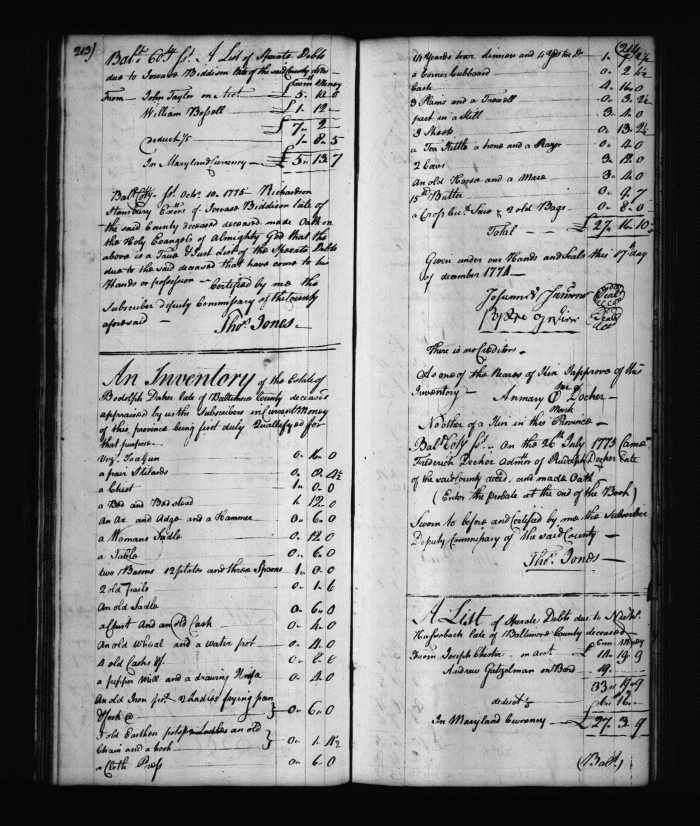 213)
Balt. Coty ss. A List of Sperate Debts
due to Jervase Biddison late of the said County deces
Curr Money
From John Taylor on Acct £ 5. 10. 0
William Bossell £ 1. 12
£ 7. 2
deduct 1/5 1. 8. 5
In Maryland Currency £ 5. 13. 7
Balt Coty ss. Octr. 10. 1775 Richardson
Stansbury Exrs. of Jervase Biddison late of
the said County deceased deceased made Oath on
the Holy Evangels of Almighty God that the
above is a True & Just List of the Sperate Debts
due to the said deceased that have come to his
Hands or possession Certified by me the
Subscriber Deputy Commissary of the County
aforesaid
Thos. Jones
An Inventory of the Estate of
late of Baltimore County deceased
appraised by us the Subscribers in Current Money
of this province being first duly Quallifyed for
that purpose
Vizt. To a Gun 0. 16. 0
a pair Stilards 0. 8. 4½
a Chest 1. 0. 0
a Bed and Bedstead 1. 12. 0
An Ax and Adge and a Hammer 0. 6. 0
a Womans Sadle 0. 12. 0
a Table 0. 6. 0
two Basons 12 plates and three Spoons 1. 0. 0
2 old pails 0. 1. 6
An old Sadle 0. 6. 0
a Chest And an old Cash 0. 4. 0
An old Wheal and a Water pot 0. 4. 0
4 old Casks &c. 0. 2. 6
a pepper Mill and a drawing Knife 0. 4. 0
An old Iron pot 2 Ladles frying pan
& fork @ 0. 6. 0
old Earthen pots an old
Chain and a hook 0. 1. 1½
a Cloth Press 0. 6. 0
(214
a Corner Cubboard 0. 2. 4½
Cash 4. 16. 0
3 Plains and a Trowell 0. 3. 2½
part in a Still 3. 4. 0
2 Sheets 0. 13. 2½
a Tea Kittle a hone and a Razor 0. 4. 0
2 Cows 3. 12. 0
An old Horse and a Mare 3. 4. 0
15 lb Butter 0. 9. 7
a Cross Cutt Saw & 2 old Bags 0. 8. 0
Total £ 27. 16. 10
Given under our Hands and Seals this 17th day
of december 1774
Seal
Seal
There is no Creditors
As one of the Neares of Kin I approve of this
Inventory
her
Annary O Decher
Mark
No other of Kin in this Province
Balt Coty ss. On the 26th July 1773 Came
Frederick Decher Admor. of Rudolph Decher late
of the said County deced. and made Oath
(Enter the probate at the end of the Book)
Sworn to before and certified by me the Subscriber
Deputy Commissary of the said County
Thos. Jones
A List of Sperate Debts due to Nichs.
late of Baltimore County deceased
Curr. Money
From Joseph Chester on Acct. £ 14. 19. 9
Andrew Gatzelman on Bond 19.
33. 19. 9
deduct 1/5 6. 16.
In Maryland Currency £ 27. 3. 9
(Balt.)